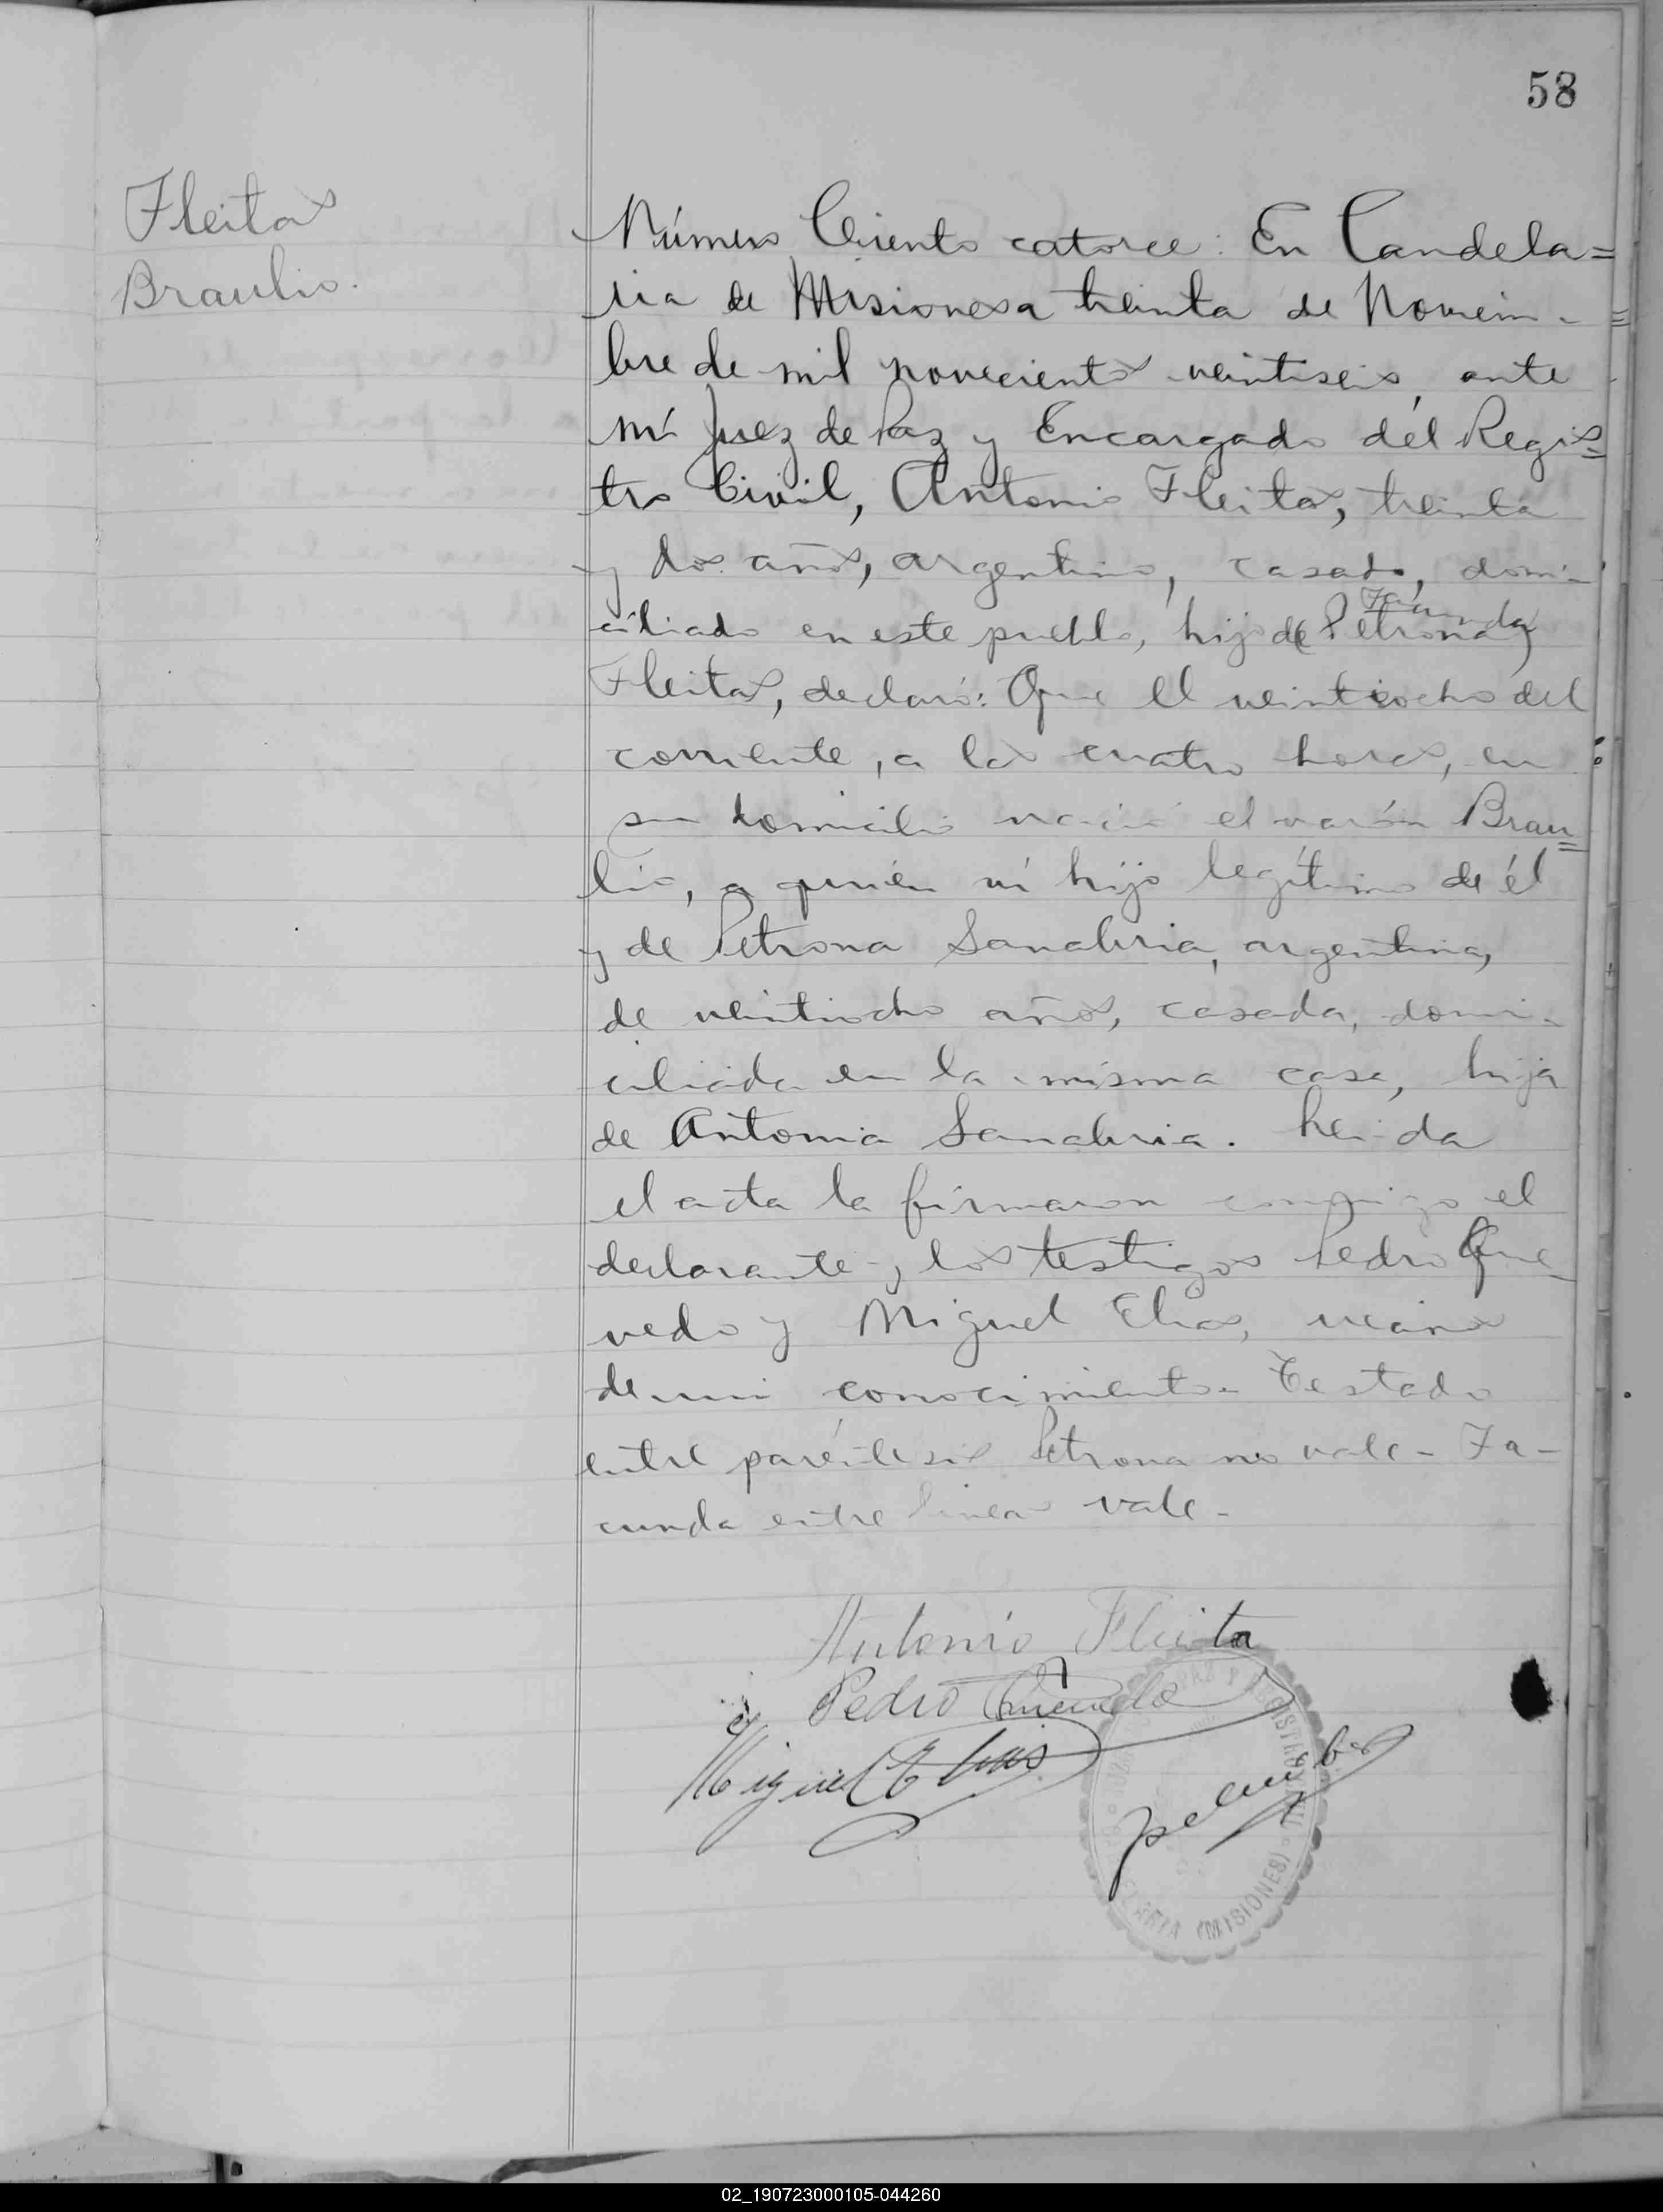 58
Fleitas
Braulio.
Número Ciento catorce: En Candela=
ria de Misiones a treinta de Noviem-
bre de mil novecientos veintiseis, ante
mí Juez de Paz y Encargado del Regis=
tro Civil, Antonio Fleitas, treinta
y dos años, argentino, casado, domi-
Facunda
ciliado en este pueblo, hijo de (Petrona)
Fleitas, declaró: Que el veintiocho del
corriente, a las cuatro horas, en
su domicilio nació el varón Brau=
lio, a quién ví hijo legítimo de él
y de Petrona Sanabria, argentina,
de veintiocho años, casada, domi-
ciliada en la misma casa, hija
de Antonia Sanabria. Leida
el acta la firmaron conmigo el
declarante y los testigos Pedro Que-
vedo y Miguel Elias, vecinos
de mi conocimiento- Testado
entre paréntesis Petrona no vale- Fa-
cunda entre lineas vale-
Antonio Fleita
Pedro Quevedo
Miguel Elias
(MISIONES)
02_190723000105-044260